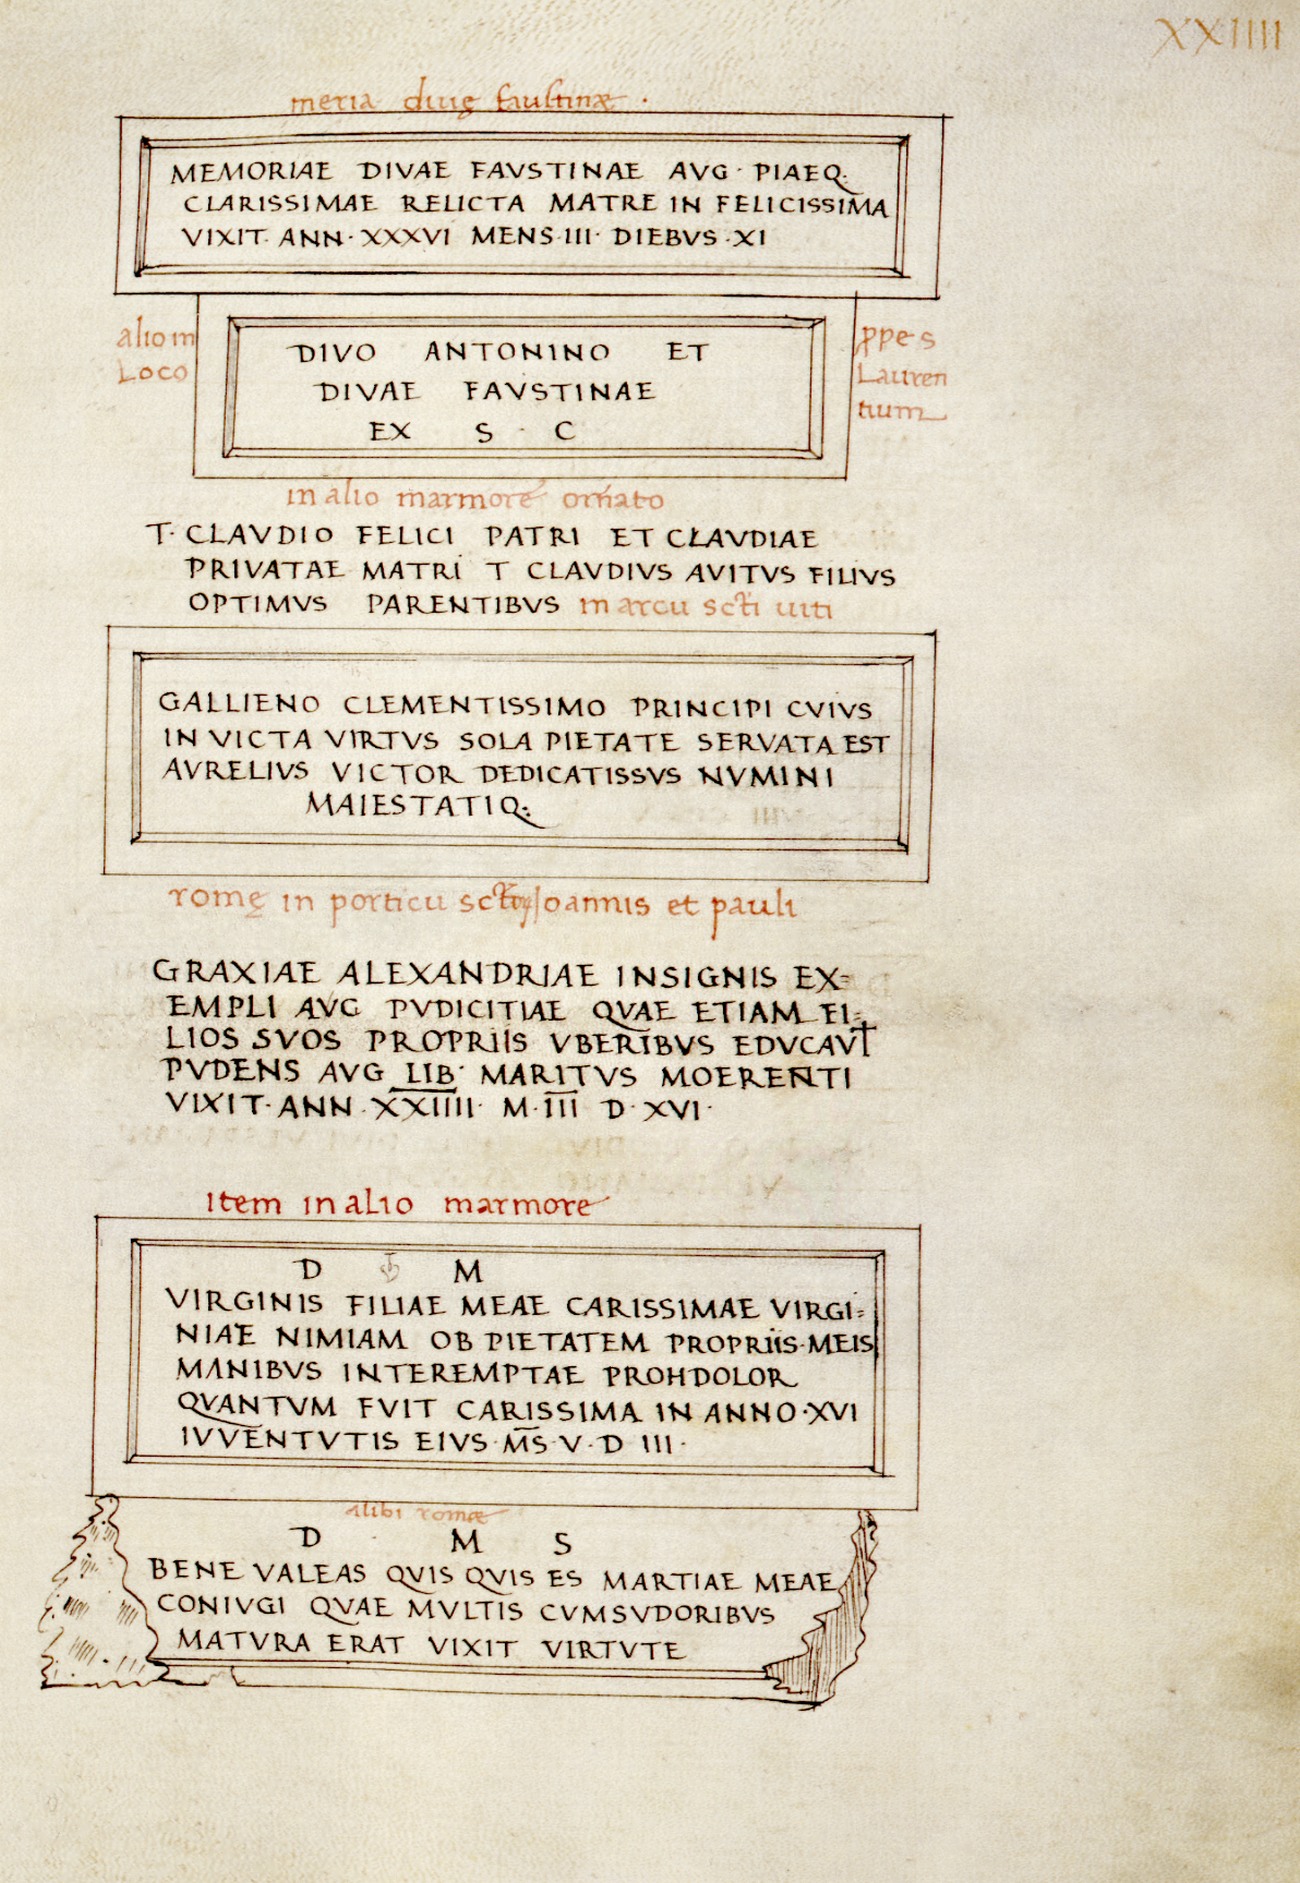 XXIIII
meria diuę faustinæ ·
MEMORIAE DIVAE FAVSTINAE AVG · PIAEQ:
CLARISSIMAE RELICTA MATRE IN FELICISSIMA
VIXIT · ANN · XXXVI MENS · III · DIEBVS · XI
alio in
Loco
DIVO ANTONINO ET
DIVAE FAVSTINAE
EX S · C
ꝓpe s
Lauren
tium
in alio marmore ornato
T · CLAVDIO FELICI PATRI ET CLAVDIAE
PRIVATAE MATRI T CLAVDIVS AVITVS FILIVS
OPTIMVS PARENTIBVS in arcu scti uiti
GALLIENO CLEMENTISSIMO PRINCIPI CVIVS
IN VICTA VIRTVS SOLA PIETATE SERVATA EST
AVRELIVS VICTOR DEDICATISSVS NVMINI
MAIESTATIQ:
romę in porticu Ioannis et pauli
GRAXIAE ALEXANDRIAE INSIGNIS EX=
EMPLI AVG PVDICITIAE QVAE ETIAM FI=
LIOS SVOS PROPRIIS VBERIBVS EDVCAVIT
PVDENS AVG LIB · MARITVS MOERENTI
VIXIT · ANN · XXIIII · M · III D · XVI ·
Item in alio marmore
D M
VIRGINIS FILIAE MEAE CARISSIMAE VIRGI=
NIAE NIMIAM OB PIETATEM PROPRIIS · MEIS
MANIBVS INTEREMPTAE PROHDOLOR
QVANTVM FVIT CARISSIMA IN ANNO · XVI
IVVENTVTIS EIVS · M̅S · V · D III ·
alibi romæ
D M S
BENE VALEAS QVIS QVIS ES MARTIAE MEAE
CONIVGI QVAE MVLTIS CVMSVDORIBVS
MATVRA ERAT VIXIT VIRTVTE